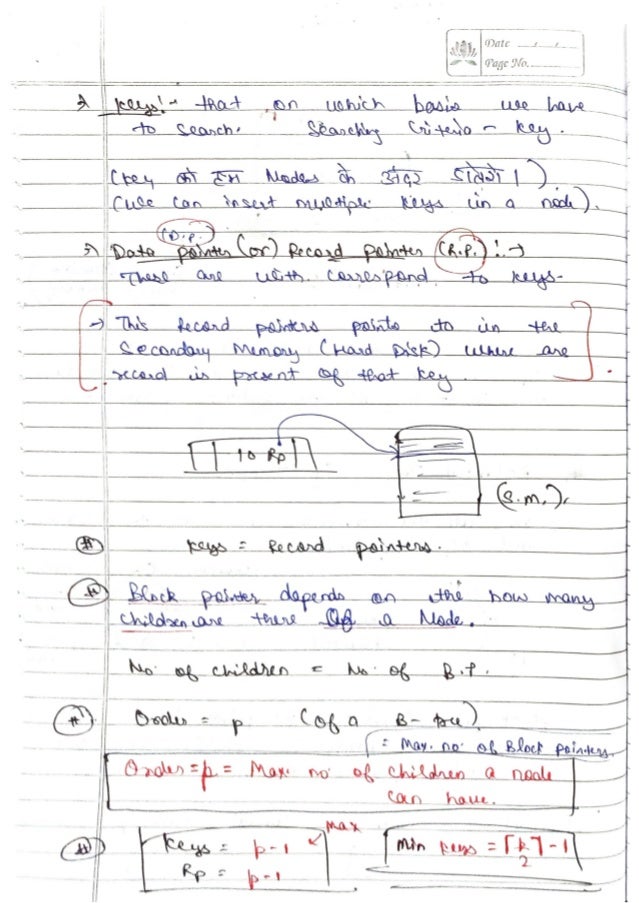 Date
Page No.
→ Keys :- that on which basis we have
to search. Searching Criteria - Key.
(Key को हम Nodes के अंदर डालेंगे।)
(We can insert multiple keys in a node).
(D.P.)
→ Data pointer (or) Record pointer (R.P.) :→
These are with correspond to keys-
→ This Record pointers points to in the
Secondary Memory (Hard Disk) where are
record is present of that key.
10 Rp
(S.M.).
# Keys = Record pointers.
# Block pointer depends on the how many
children are there of a Node.
No. of children = No. of B.P.
# Order = p (of a B-tree)
= Max. no of Block pointers.
Order = p = Max. no of children a node
can have.
Max
# Keys = p-1 Min keys = ⌈p/2⌉ - 1
Rp = p-1